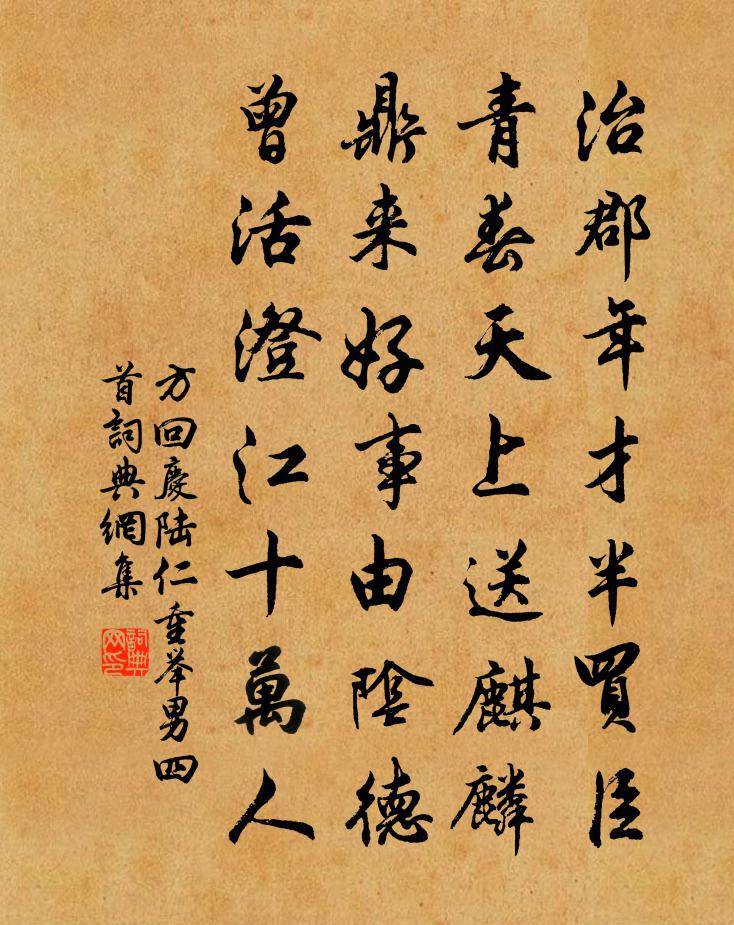 治郡年才半買臣
青春天上送麒麟
鼎来好事由陰德
曾活澄江十萬人
方回慶陆仁重举男四
首詞典網集
詞典网印